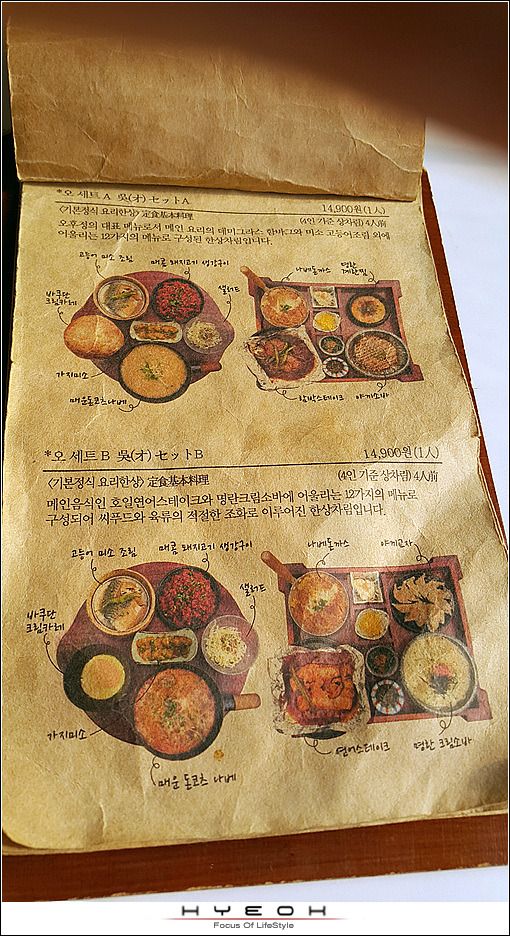 *오 세트 A 吳(才) セットA 14,900원(1人)
〈기본정식 요리한상〉 定食基本料理 (4인 기준 상차림) 4人前
오후정의 대표 메뉴로서 메인 요리의 데미그라스 함바그와 미소 고등어조림 외에
어울리는 12가지의 메뉴로 구성된 한상차림입니다.
고등어 미소 조림
매콤 돼지고기 생강구이
바쿠단
크림카레
샐러드
가지미소
매운돈코츠나베
나베돈까스
명란
계란찜
함박스테이크
야끼소바
*오 세트 B 吳(才) セットB 14,900원(1人)
〈기본정식 요리한상〉 定食基本料理 (4인 기준 상차림) 4人前
메인음식인 호일연어스테이크와 명란크림소바에 어울리는 12가지의 메뉴로
구성되어 씨푸드와 육류의 적절한 조화로 이루어진 한상차림입니다.
고등어 미소 조림
매콤 돼지고기 생강구이
바쿠단
크림카레
샐러드
가지미소
매운 돈코츠 나베
나베돈까스
야끼교자
연어스테이크
명란 크림소바
HYEOH
Focus Of LifeStyle